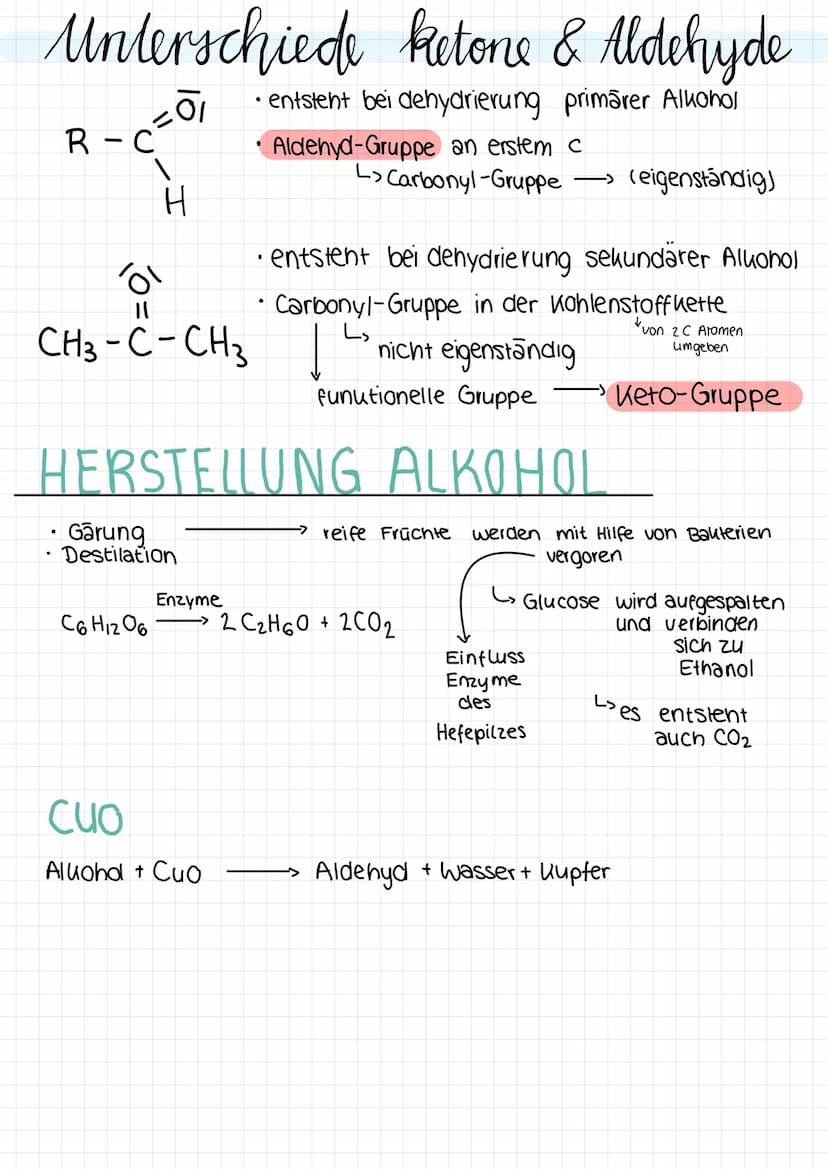 Unterschiede Ketone & Aldehyde
R - C = O
H
• entsteht bei dehydrierung primärer Alkohol
• Aldehyd-Gruppe an erstem C
↳ Carbonyl-Gruppe → (eigenständig)
O
CH3 - C - CH3
• entsteht bei dehydrierung sekundärer Alkohol
• Carbonyl-Gruppe in der Kohlenstoffkette
↓ von 2 C Atomen
umgeben
↳ nicht eigenständig
funktionelle Gruppe → Keto-Gruppe
HERSTELLUNG ALKOHOL
• Gärung → reife Früchte werden mit Hilfe von Bakterien
vergoren
• Destilation
Enzyme
C6H12O6 → 2 C2H6O + 2CO2
↳ Glucose wird aufgespalten
und verbinden
sich zu
Ethanol
Einfluss
Enzyme
des
Hefepilzes
↳ es entsteht
auch CO2
CUO
Alkohol + CuO → Aldehyd + Wasser + Kupfer